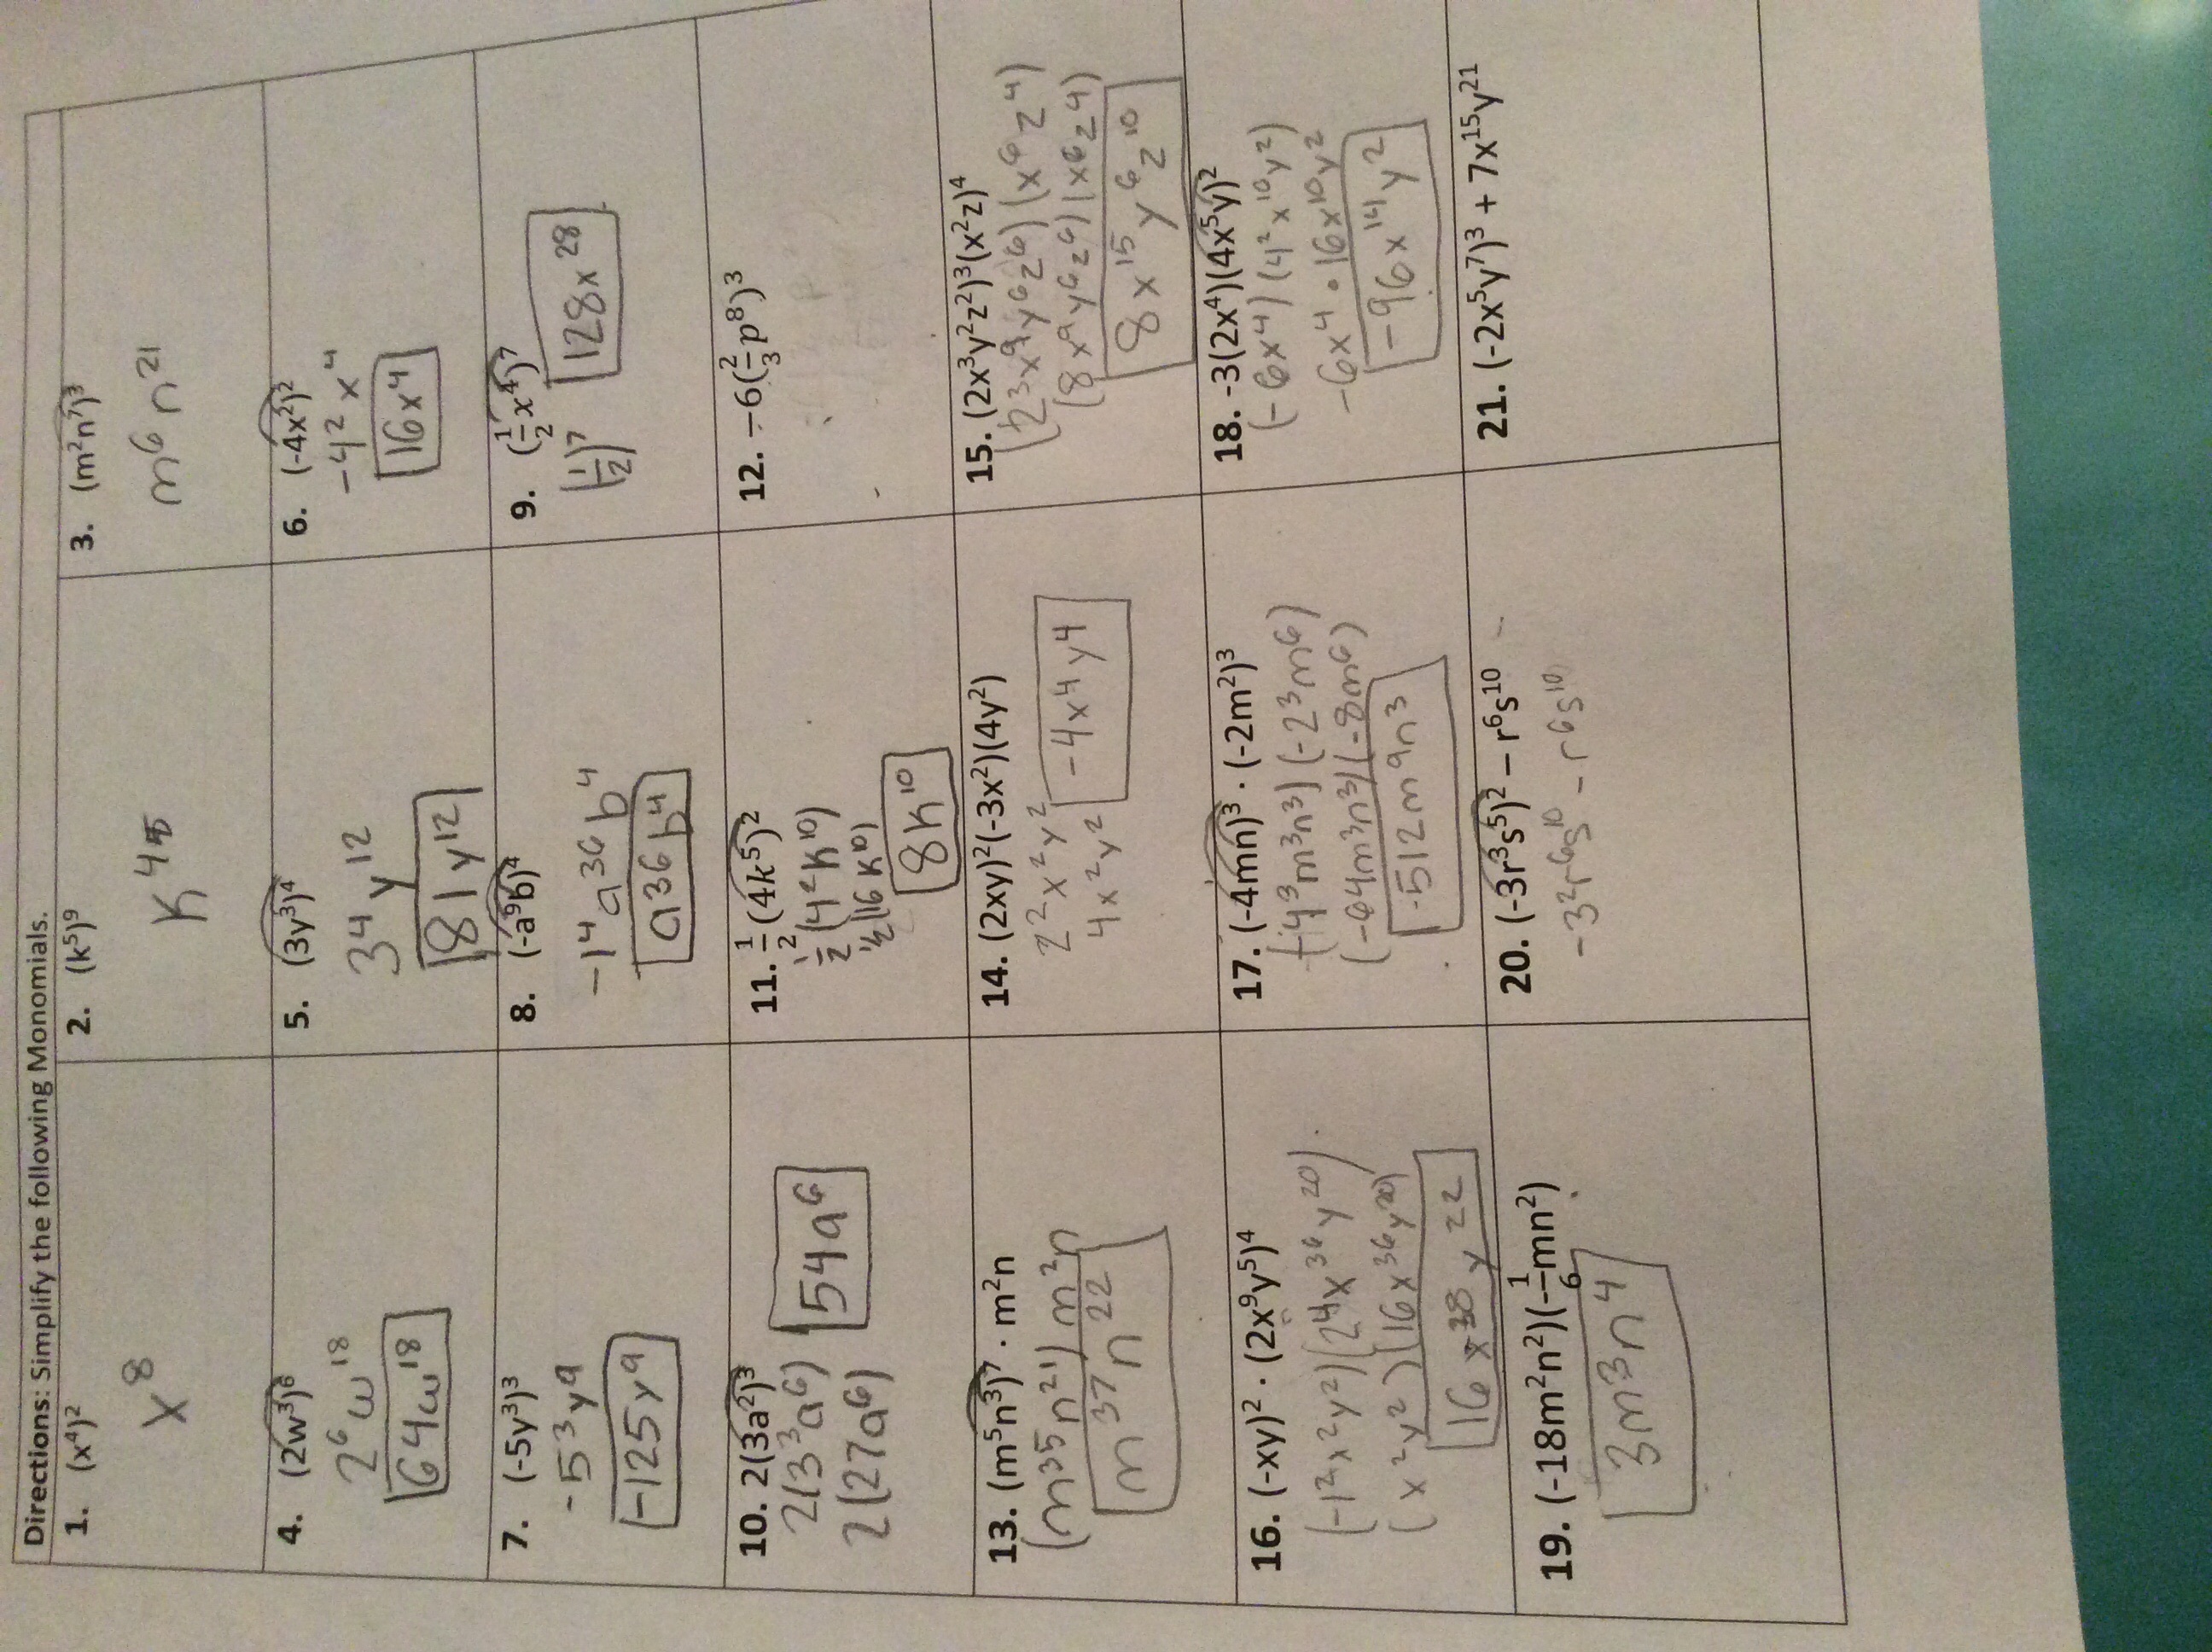 Directions: Simplify the following Monomials.
1. (x⁴)²
x⁸
2. (k⁵)⁹
K⁴⁵
3. (m²n⁷)³
m⁶ n²¹
4. (2w³)⁶
2⁶ w¹⁸
64w¹⁸
5. (3y³)⁴
3⁴ y¹²
81y¹²
6. (-4x²)²
-4² x⁴
16x⁴
7. (-5y³)³
-5³ y⁹
-125y⁹
8. (-a⁹b)⁴
-1⁴ a³⁶ b⁴
a³⁶ b⁴
9. (1/2 x⁴)⁷
(1/2)⁷
128x²⁸
10. 2(3a²)³
2(3³a⁶)
2(27a⁶)
54a⁶
11. 1/2 (4k⁵)²
1/2 (4² K¹⁰)
1/2 (16 K¹⁰)
8K¹⁰
12. −6(2/3 p⁸)³
13. (m⁵n³)⁷ · m²n
(m³⁵n²¹) m²n
m³⁷n²²
14. (2xy)²(-3x²)(4y²)
2² x² y²
4x²y²
-4x⁴y⁴
15. (2x³y²z²)³(x²z)⁴
(2³x⁹y⁶z⁶)(x⁶z⁴)
(8x⁹y⁶z⁶)(x⁶z⁴)
8x¹⁵y⁶z¹⁰
16. (-xy)² · (2x⁹y⁵)⁴
(-1²x²y²)(2⁴x³⁶y²⁰)
(x²y²)(16x³⁶y²⁰)
16x³⁸y²²
17. (-4mn)³ · (-2m²)³
(-4³m³n³)(-2³m⁶)
(-64m³n³)(-8m⁶)
-512m⁹n³
18. -3(2x⁴)(4x⁵y)²
(-6x⁴)(4²x¹⁰y²)
-6x⁴ · 16x¹⁰y²
-96x¹⁴y²
19. (-18m²n²)(−1/6 mn²)
3m³n⁴
20. (-3r³s⁵)² – r⁶s¹⁰
-3²r⁶s¹⁰ - r⁶s¹⁰
21. (-2x⁵y⁷)³ + 7x¹⁵y²¹